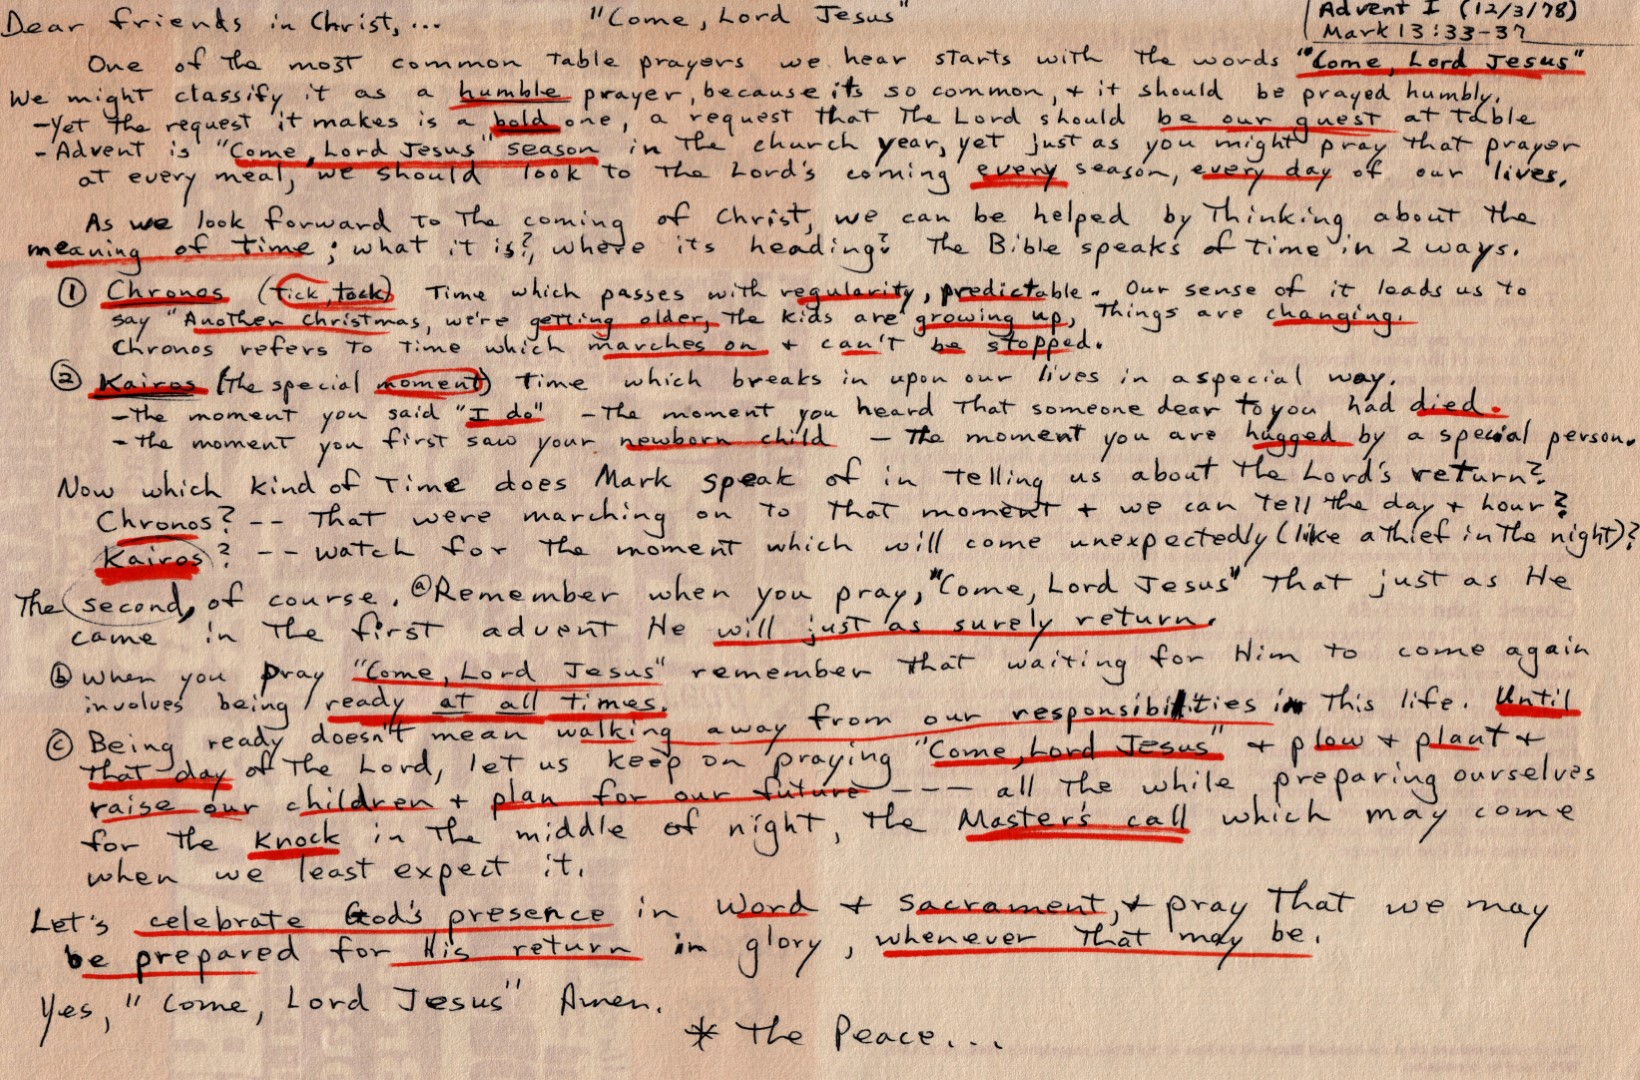 Dear friends in Christ, ... "Come, Lord Jesus" Advent I (12/3/78)
Mark 13:33-37
One of the most common table prayers we hear starts with the words "Come, Lord Jesus"
We might classify it as a humble prayer, because its so common, + it should be prayed humbly.
-Yet the request it makes is a bold one, a request that the Lord should be our guest at table
- Advent is "Come, Lord Jesus" season in the church year, yet just as you might pray that prayer
at every meal, we should look to the Lord's coming every season, every day of our lives.
As we look forward to the coming of Christ, we can be helped by thinking about the
meaning of time; what it is?, where its heading? The Bible speaks of time in 2 ways.
① Chronos (tick, tock) Time which passes with regularity, predictable. Our sense of it leads us to
say "Another Christmas, we're getting older, the kids are growing up, things are changing.
Chronos refers to time which marches on + can't be stopped.
② Kairos (the special moment) time which breaks in upon our lives in a special way.
-the moment you said "I do" -the moment you heard that someone dear to you had died.
-the moment you first saw your newborn child - the moment you are hugged by a special person.
Now which kind of Time does Mark speak of in telling us about the Lord's return?
Chronos? -- That were marching on to that moment + we can tell the day + hour?
Kairos? -- watch for the moment which will come unexpectedly (like a thief in the night)?
The second, of course. ⓐ Remember when you pray, "Come, Lord Jesus" that just as He
came in the first advent He will just as surely return.
ⓑ when you pray "Come, Lord Jesus" remember that waiting for Him to come again
involves being ready at all times.
ⓒ Being ready doesn't mean walking away from our responsibilities in this life. Until
that day of the Lord, let us keep on praying "Come, Lord Jesus" + plow + plant +
raise our children + plan for our future --- all the while preparing ourselves
for the knock in the middle of night, the Master's call which may come
when we least expect it.
Let's celebrate God's presence in Word + Sacrament, + pray that we may
be prepared for His return in glory, whenever that may be.
Yes, "Come, Lord Jesus" Amen.
* The Peace...